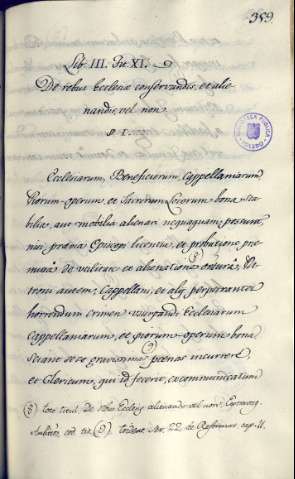 359
Lib. III. Tit. XI.
De rebus Ecclesiæ conservandis, et alie-
nandis, vel non
§ I.
Ecclesiarum, Beneficiorum, Cappellaniarum
Piorum operum, et Sacrorum Locorum bona sta-
bilia, aut mobilia alienari nequaquam possunt,
nisi prævia Episcopi licentia, et probatione præ-
missa de
et alienatione
autem, Cappellani, et alij perpetrantes
horrendum crimen usurpandi Ecclesiarum
Cappellaniarum, et piorum operum bona
sciant se se gravissimas pœnas incurrere
et Clericum, qui id fecerit, excommunicatum
(8) toto titul. de rebus Eccles. alienandis vel non. Extravag.
eod. tit. (9) Trident. Ses. 22 de Reformat. cap. 11.
BIBLIOTECA PUBLICA
TOLEDO